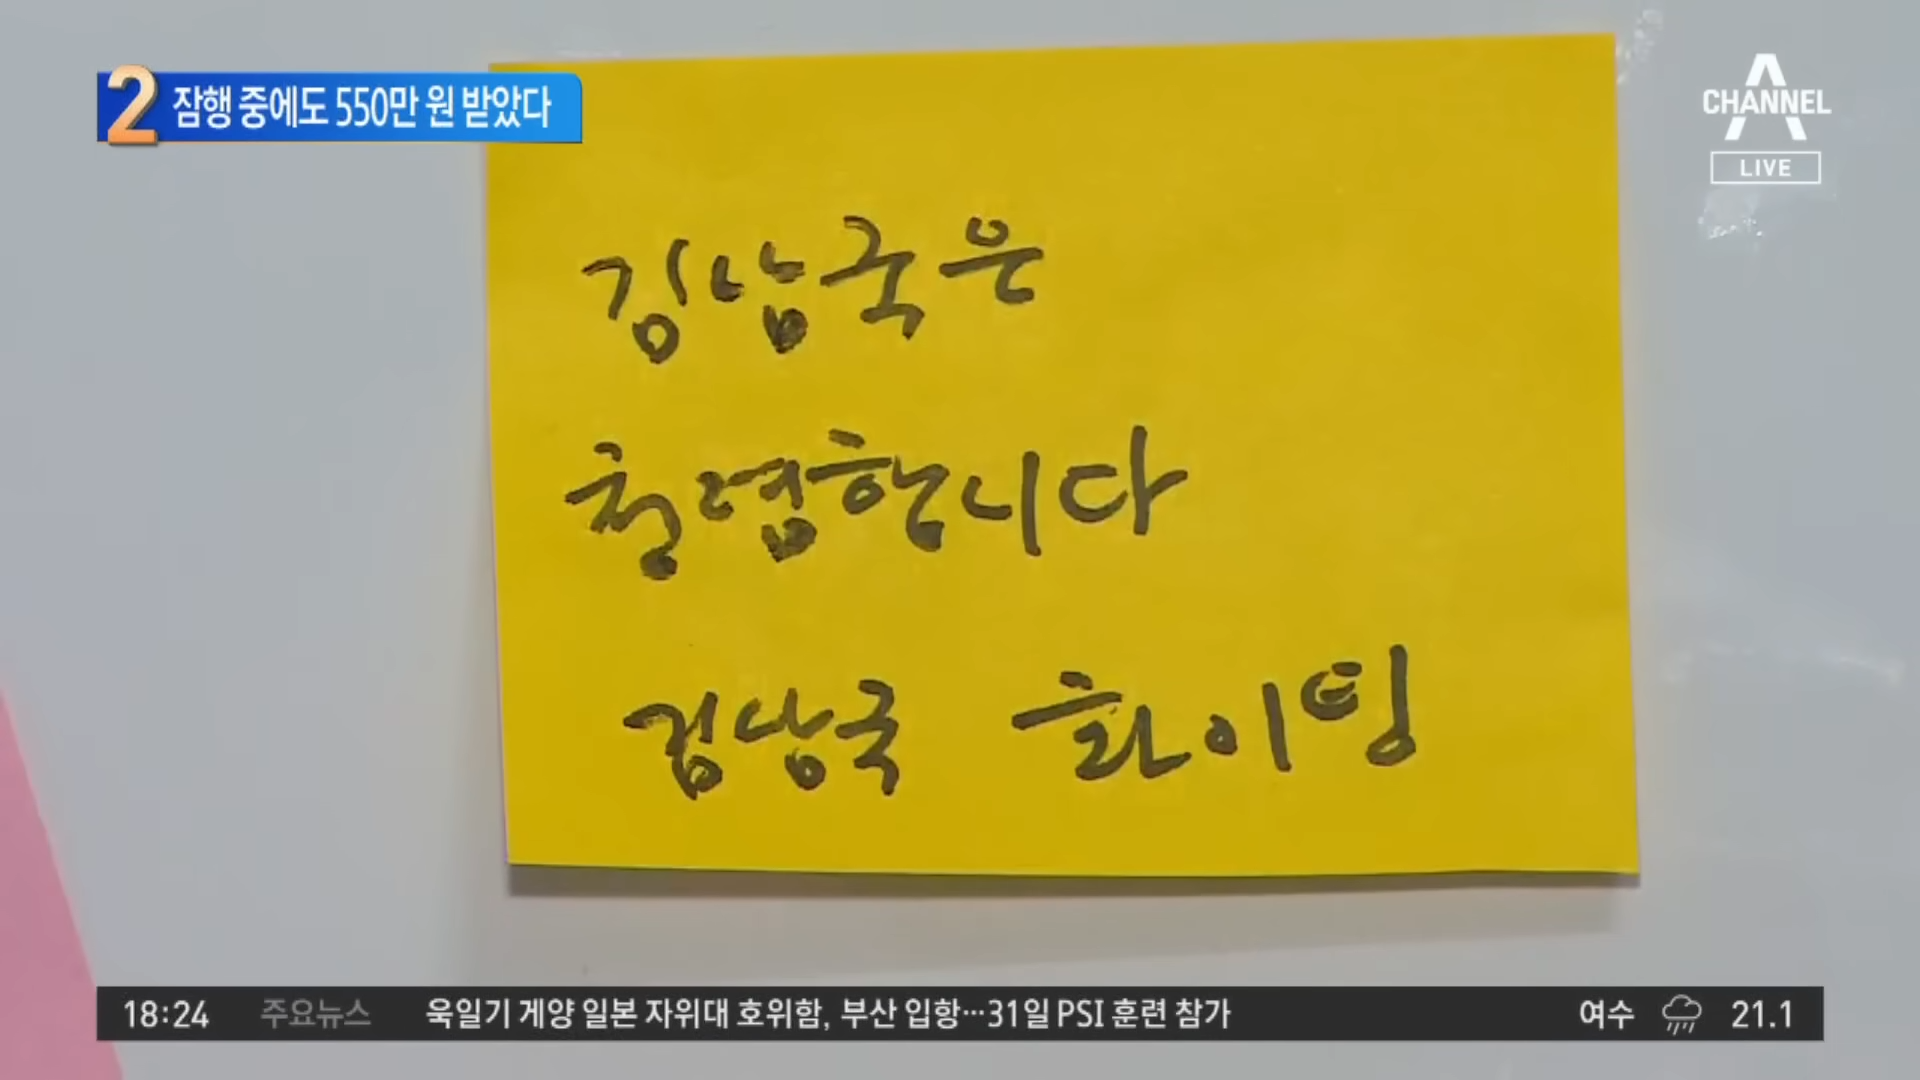 2 잠행 중에도 550만 원 받았다
CHANNEL A
LIVE
김남국은
청렴합니다
김남국 화이팅
18:24 주요뉴스 욱일기 게양 일본 자위대 호위함, 부산 입항…31일 PSI 훈련 참가 여수 21.1